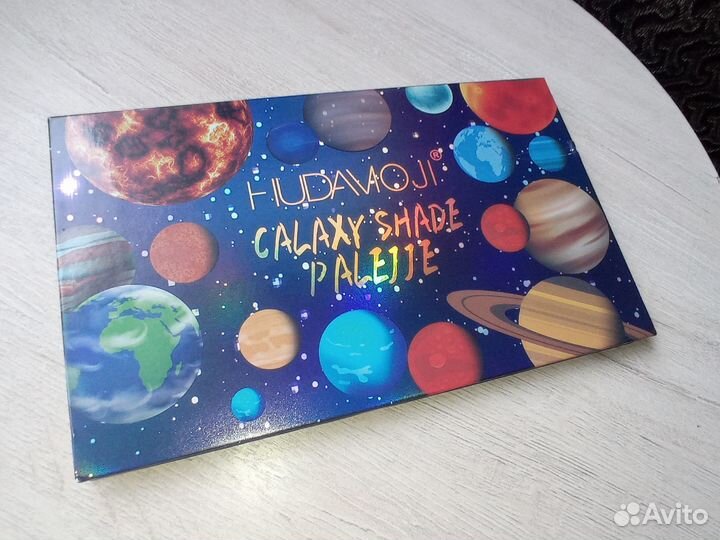 HUDAMOJI®
GALAXY SHADE
PALETTE
Avito